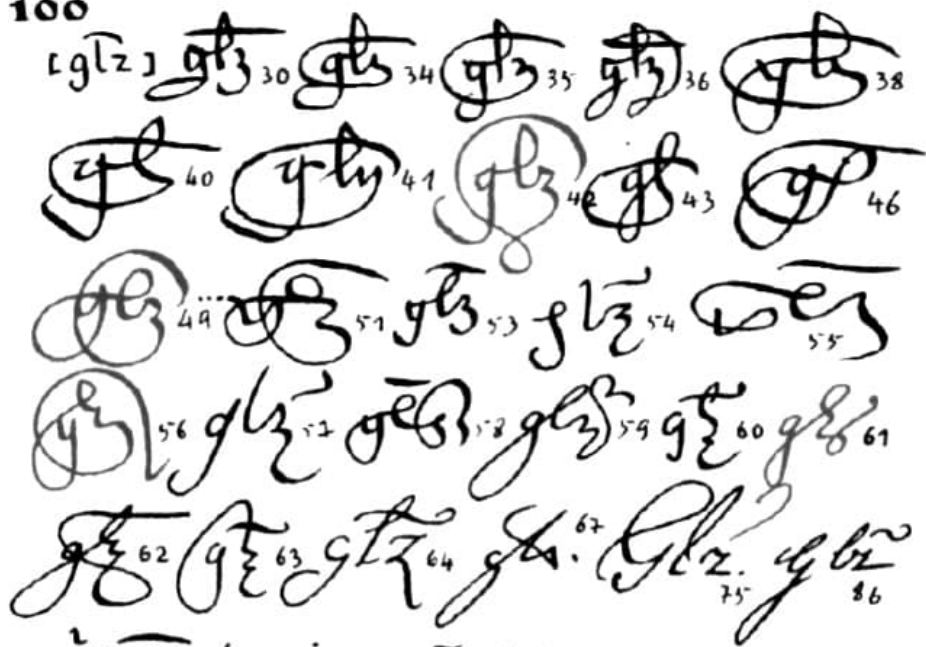 100
[gl̅z] glz 30 glz 34 glz 35 glz 36 glz 38
gl 40 glz 41 glz 42 gl 43 gl 46
glz 49 ... 51 glz 53 glz 54 55
glz 56 glz 57 glz 58 glz 59 glz 60 glz 61
glz 62 glz 63 glz 64 glz. 67 Glz. 75 glz 86